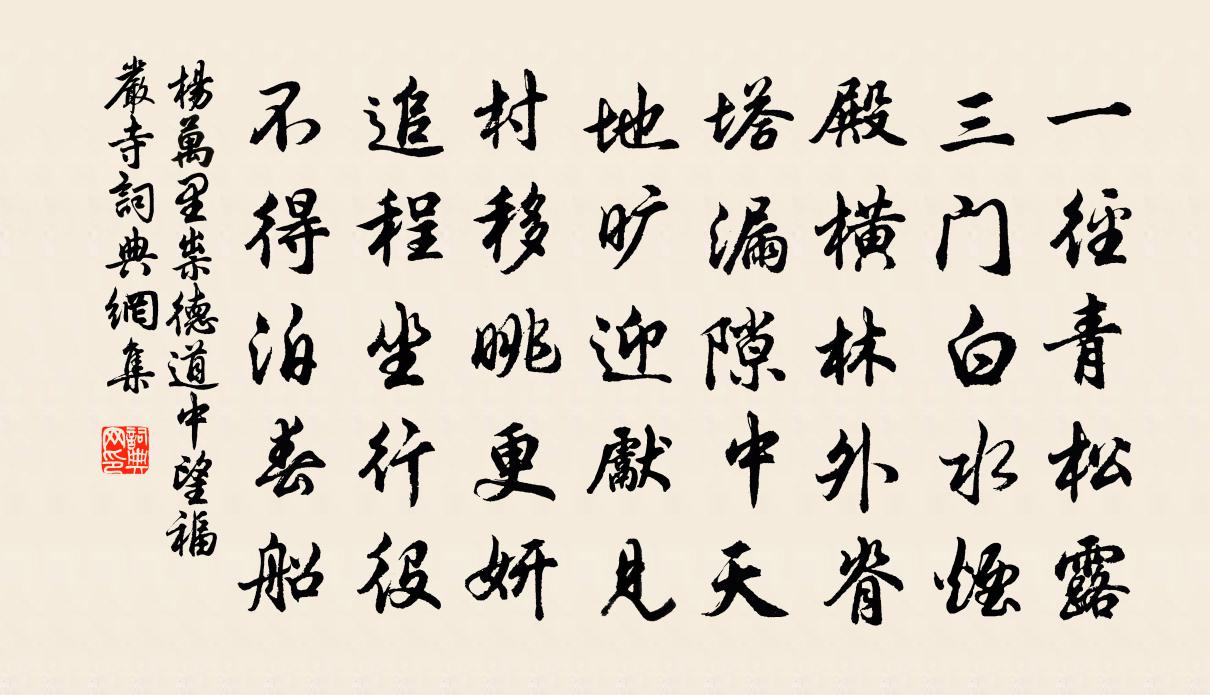 一徑青松露
三门白水煙
殿橫林外脊
塔漏隙中天
地旷迎獻見
村移眺更妍
追程坐行役
不得泊春船
楊萬里崇德道中望福
嚴寺詞典網集
詞典網印